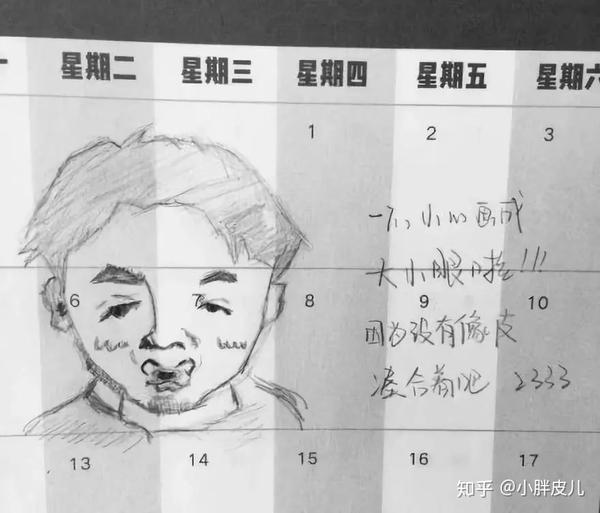 星期二 星期三 星期四 星期五 星期六
1 2 3
一不小心画成
大小眼啦!!!
6 7 8 9 10
因为没有像皮
凑合着吧 2333
13 14 15 16 17
知乎 @小胖皮儿